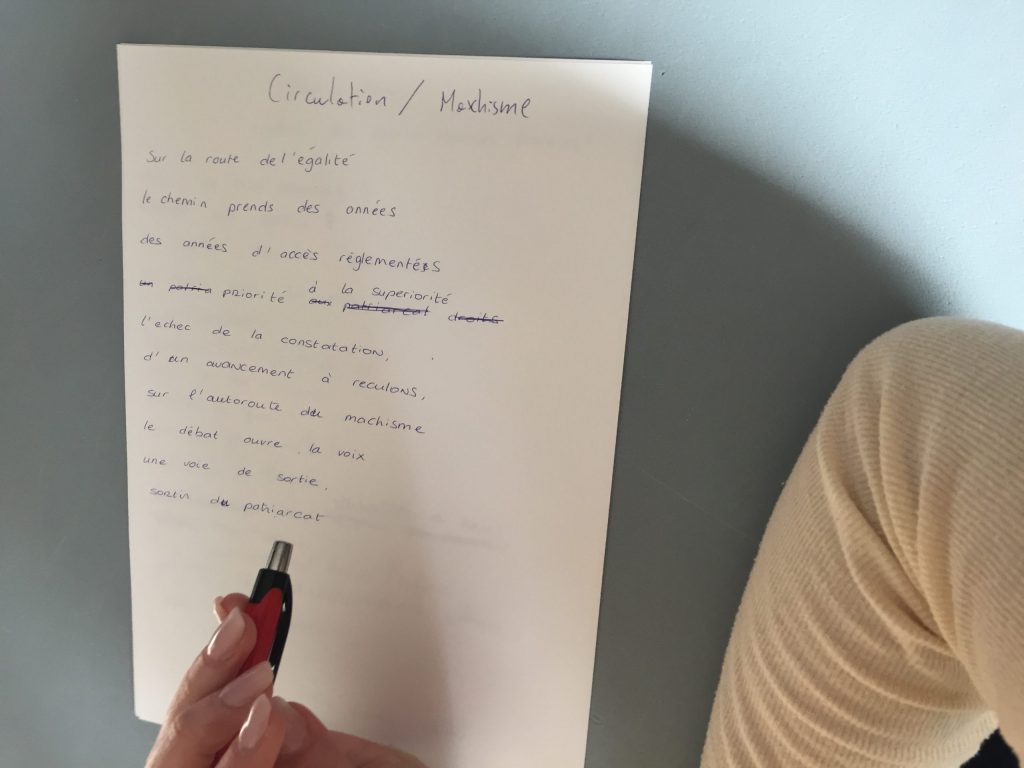 Circulation / Machisme
Sur la route de l'égalité
le chemin prends des années
des années d'accès réglementés
un patria priorité aux patriarcat droits à la superiorité
l'echec de la constatation,
d'un avancement à reculons,
sur l'autoroute du machisme
le débat ouvre la voix
une voie de sortie,
sortir du patriarcat